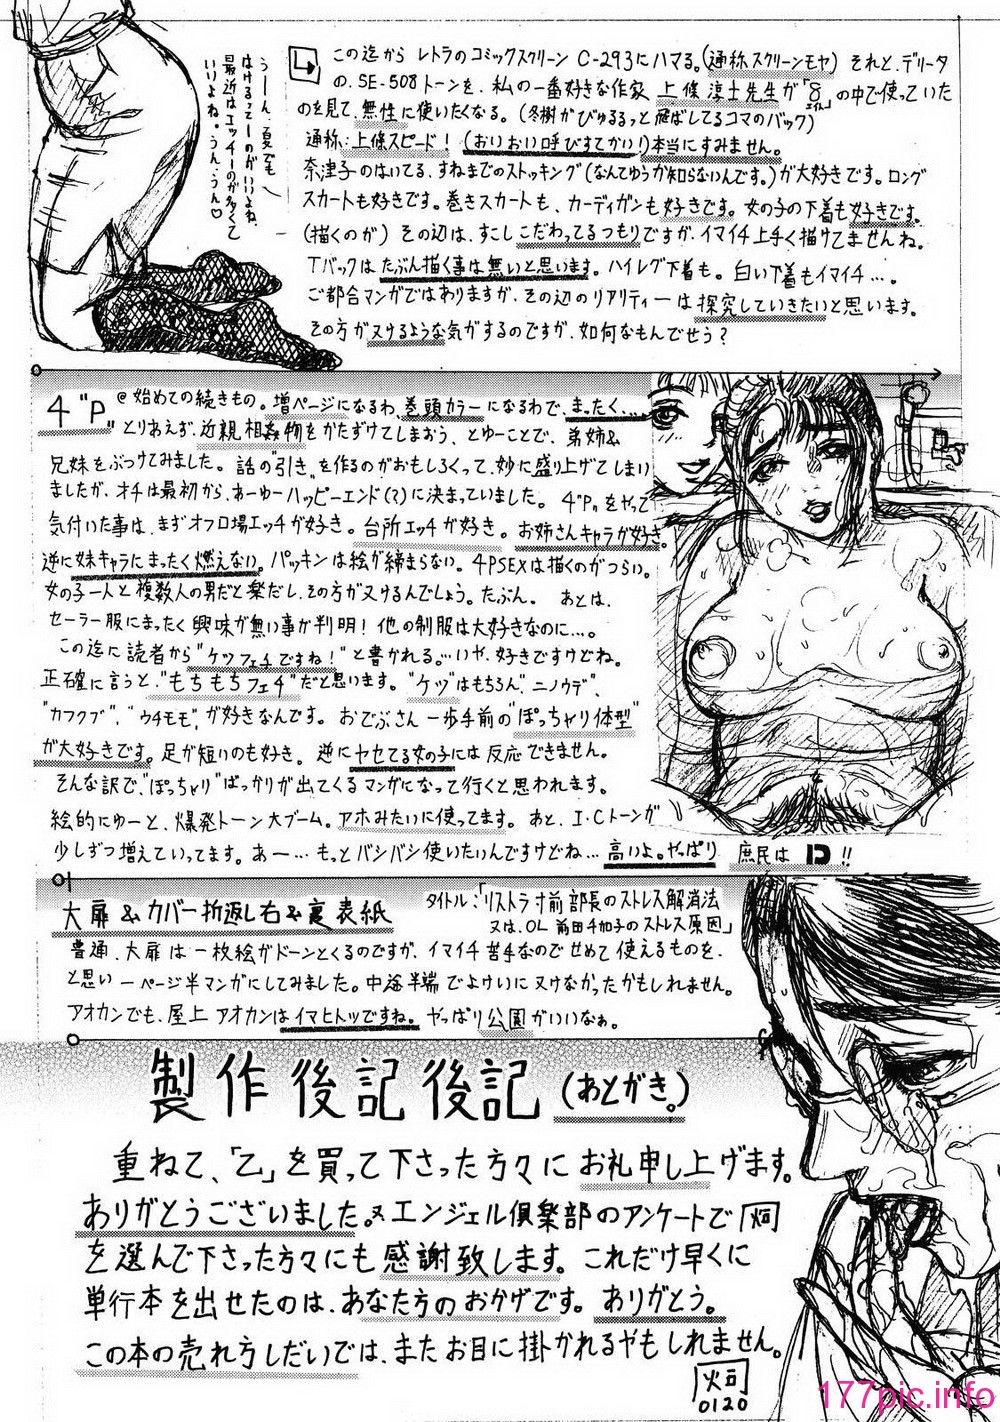 この迄から レトラのコミックスクリーン C-293にハマる。(通称スクリーンモヤ) それと、デリータ
の、SE-508トーンを、私の一番好きな作家 上條淳士先生が「8」の中で使っていた
のを見て、無性に使いたくなる。(冬樹がびゅるるっと飛ばしてるコマのバック)
通称:上條スピード! (おいおい呼びすてかい!)本当にすみません。
奈津子のはいてる、すねまでのストッキング(なんてゆうか知らないんです。)が大好きです。ロング
スカートも好きです。巻きスカートも、カーディガンも好きです。女の子の下着も好きです。
(描くのが) その辺は、すこしこだわってるつもりですが、イマイチ上手く描けてませんね。
Tバックはたぶん描く事は無いと思います。ハイレグ下着も。白い下着もイマイチ…。
ご都合マンガではありますが、その辺のリアリティーは探究していきたいと思います。
その方がヌけるような気がするのですが、如何なもんでせう?
うーん、夏でも
はけるってーのがいいよね、
最近はエッチーのが多くて
いいよね。うん、うん♡
4"P"
@始めての続きもの。増ページになるわ、巻頭カラーになるわで、まったく…。
とりあえず、近親相姦物をかたずけてしまおう、とゆーことで、弟姉&
兄妹をぶつけてみました。話の"引き"を作るのがおもしろくって、妙に盛り上げてしまい
ましたが、オチは最初から、あーゆーハッピーエンド(?)に決まっていました。4"P"をやって
気付いた事は、まずオフロ場エッチが好き。台所エッチが好き。お姉さんキャラが好き。
逆に妹キャラにまったく燃えない。パッキンは絵が締まらない。4PSEXは描くのがつらい。
女の子一人と複数人の男だと楽だし、その方がヌけるんでしょう。たぶん。 あとは、
セーラー服にまったく興味が無い事が判明!他の制服は大好きなのに…。
この迄に読者から"ケツフェチですね!"と書かれる。…いや、好きですけどね。
正確に言うと、"もちもちフェチ"だと思います。"ケツ"はもちろん、"ニノウデ"、
"カフクブ"、"ウチモモ"、が好きなんです。おでぶさん一歩手前の"ぽっちゃり体型"
が大好きです。足が短いのも好き。逆にヤセてる女の子には反応できません。
そんな訳で"ぽっちゃり"ばっかりが出てくるマンガになって行くと思われます。
絵的にゆーと、爆発トーン大ブーム。アホみたいに使ってます。あと、I・Cトーンが
少しずつ増えていってます。あー…もっとバシバシ使いたいんですけどね…高いよ。やっぱり 庶民は !!
大扉&カバー折返し右&裏表紙
タイトル:「リストラ寸前部長のストレス解消法
又は、OL 前田千加子のストレス原因」
普通、大扉は一枚絵がドーンとくるのですが、イマイチ苦手なのでせめて使えるものを、
と思い一ページ半マンガにしてみました。中途半端でよけいにヌけなかったかもしれません。
アオカンでも、屋上アオカンはイマヒトツですね。やっぱり公園がいいなぁ。
製作後記後記(あとがき。)
重ねて、「乙」を買って下さった方々にお礼申し上げます。
ありがとうございました。又エンジェル倶楽部のアンケートで
を選んで下さった方々にも感謝致します。これだけ早くに
単行本を出せたのは、あなた方のおかげです。ありがとう。
この本の売れ方しだいでは、またお目に掛かれるやもしれません。
0120
177pic.info